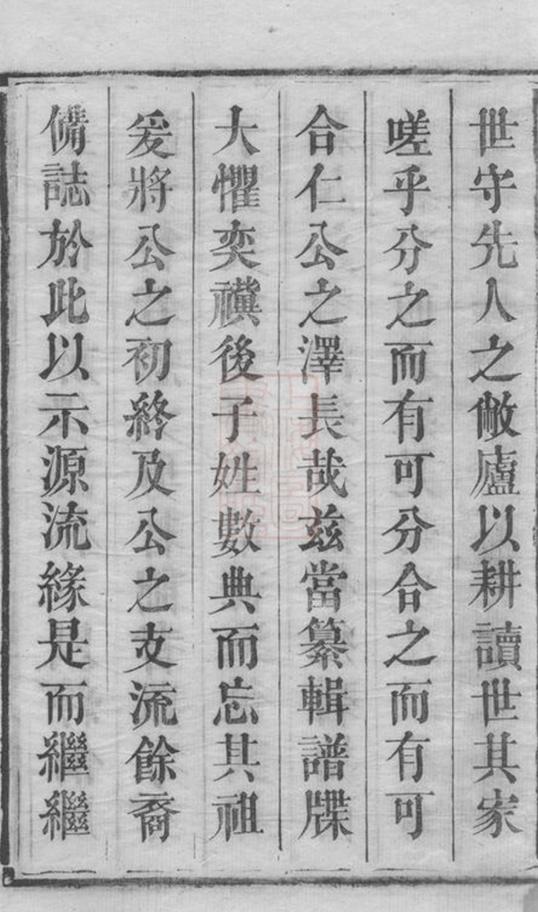 世守先人之敝廬以耕讀世其家
嗟乎分之而有可分合之而有可
合仁公之澤長哉茲當纂輯譜牒
大懼奕禩後子姓數典而忘其祖
爰將公之初終及公之支流餘裔
備誌於此以示源流緣是而繼繼